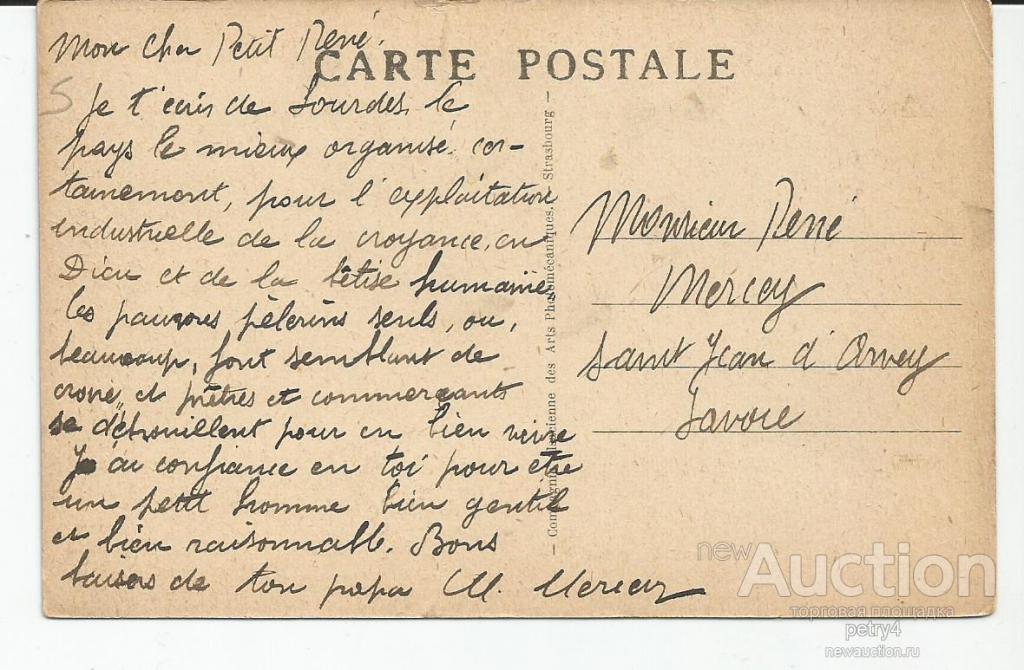 Mon Cher Petit René.
CARTE POSTALE
5
Je t'écris de Lourdes, le
pays le mieux organisé cer-
tainement, pour l'exploitation
industrielle de la croyance, en
Dieu et de la bêtise humaine,
les pauvres pèlerins seuls, ou,
beaucoup, font semblant de
croire, et prêtres et commerçants
se débrouillent pour en bien vivre
Je ai confiance en toi pour être
un petit homme bien gentil
et bien raisonnable. Bons
baisers de ton papa M. Mercey
— Compagnie Alsacienne des Arts Photomécaniques, Strasbourg —
Monsieur René
Mercey
Saint Jean d'Arvey
Savoie
newAuction
торговая площадка
petry4
newauction.ru